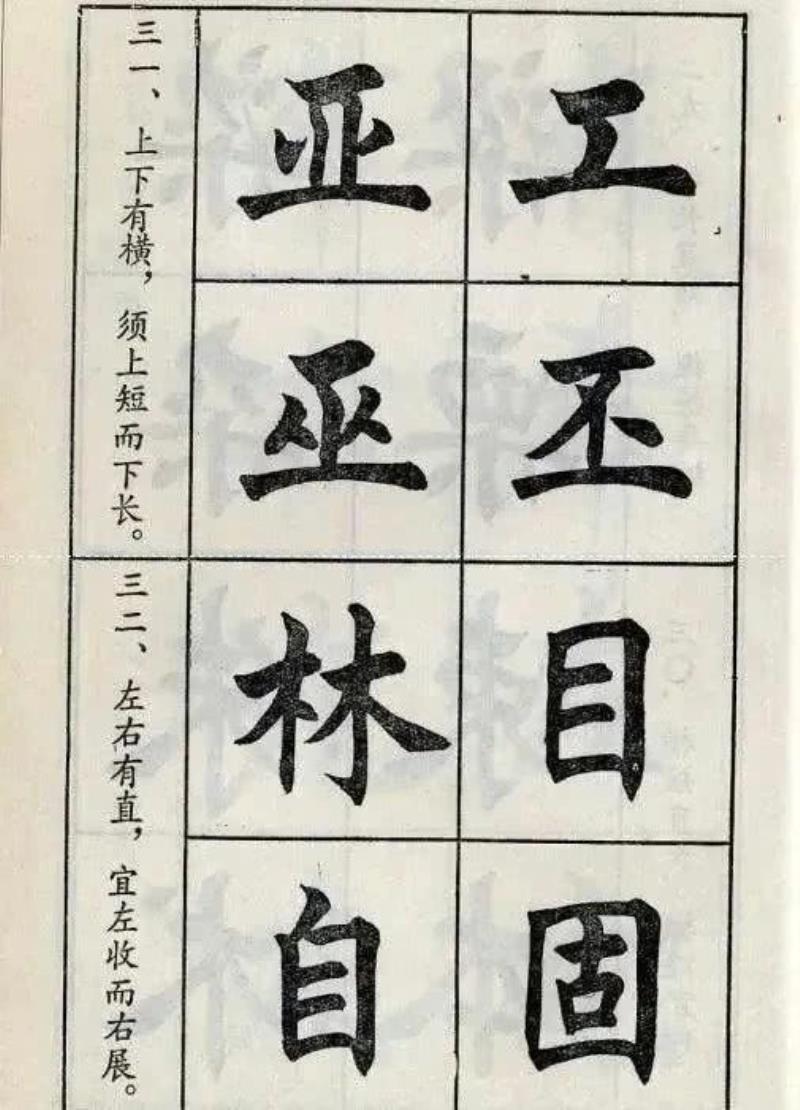 三一、上下有横，须上短而下长。
亚 工
巫 丕
三二、左右有直，宜左收而右展。
林 目
自 固